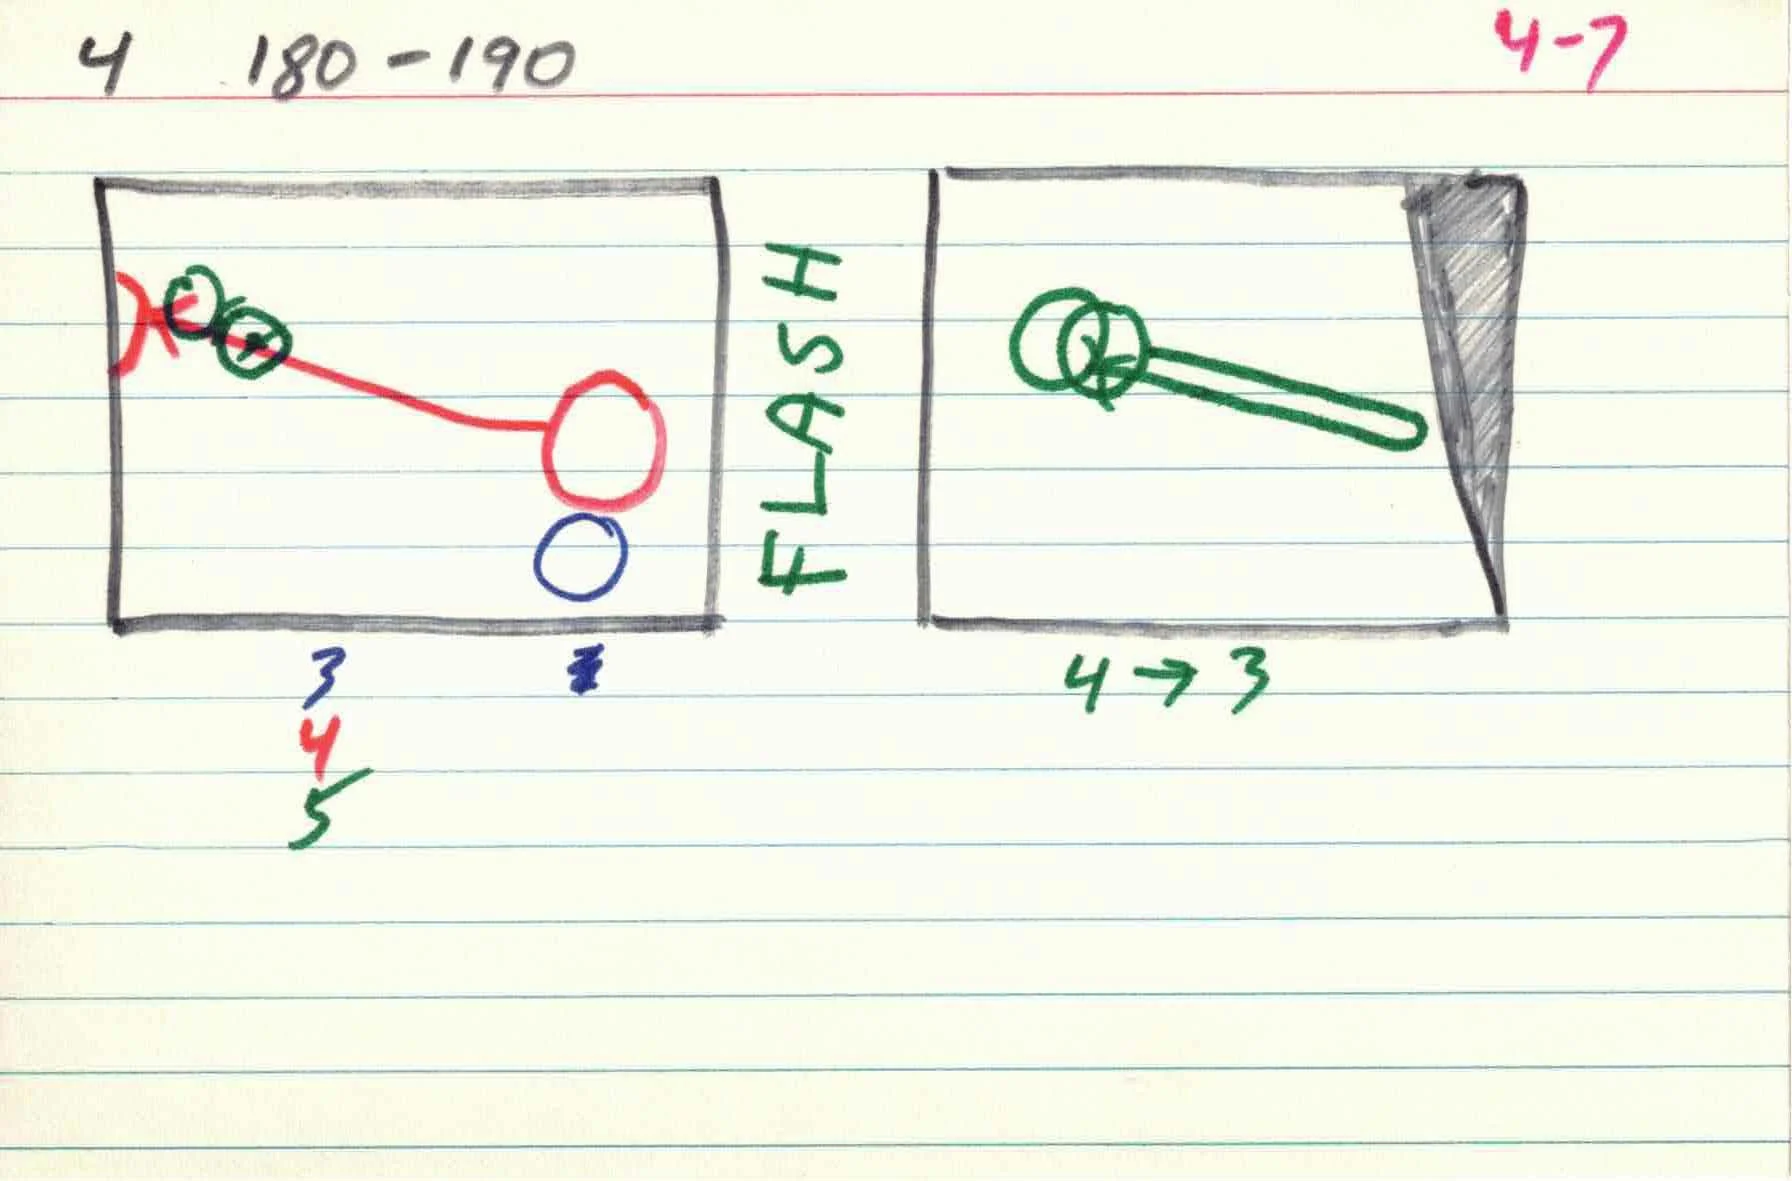 4 180-190 4-7
FLASH
3
4
5
4 → 3